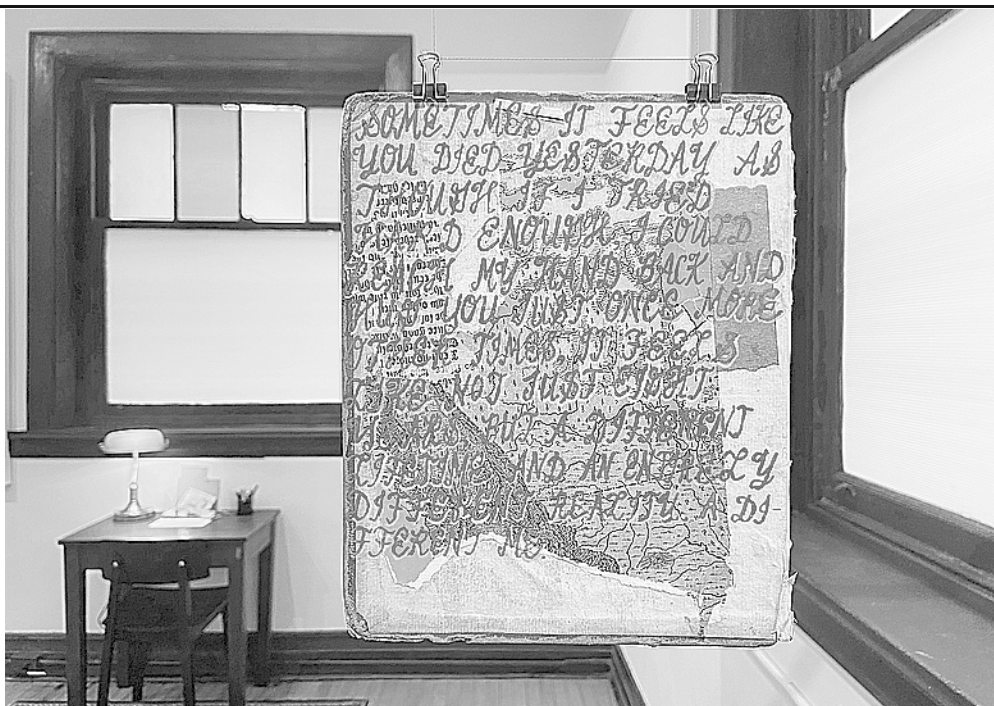 SOMETIMES IT FEELS LIKE
YOU DIED YESTERDAY AS
THOUGH IF I TRIED
HARD ENOUGH I COULD
REACH MY HAND BACK AND
HUG YOU JUST ONCE MORE
OTHER TIMES IT FEELS
LIKE NOT JUST EIGHT
YEARS BUT A DIFFERENT
LIFETIME AND AN ENTIRELY
DIFFERENT REALITY A DI-
FFERENT ME